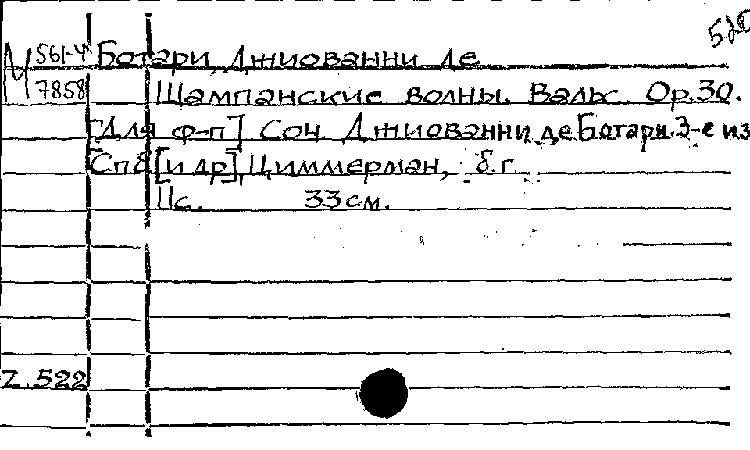 М 561-4
7858
Ботари, Джиованни де
Шампанские волны. Вальс. Ор. 30.
[Для ф-п] Соч. Джиованни де Ботари. 3-е из
Спб [и др], Циммерман, б.г.
11с. 33 см.
Z. 522